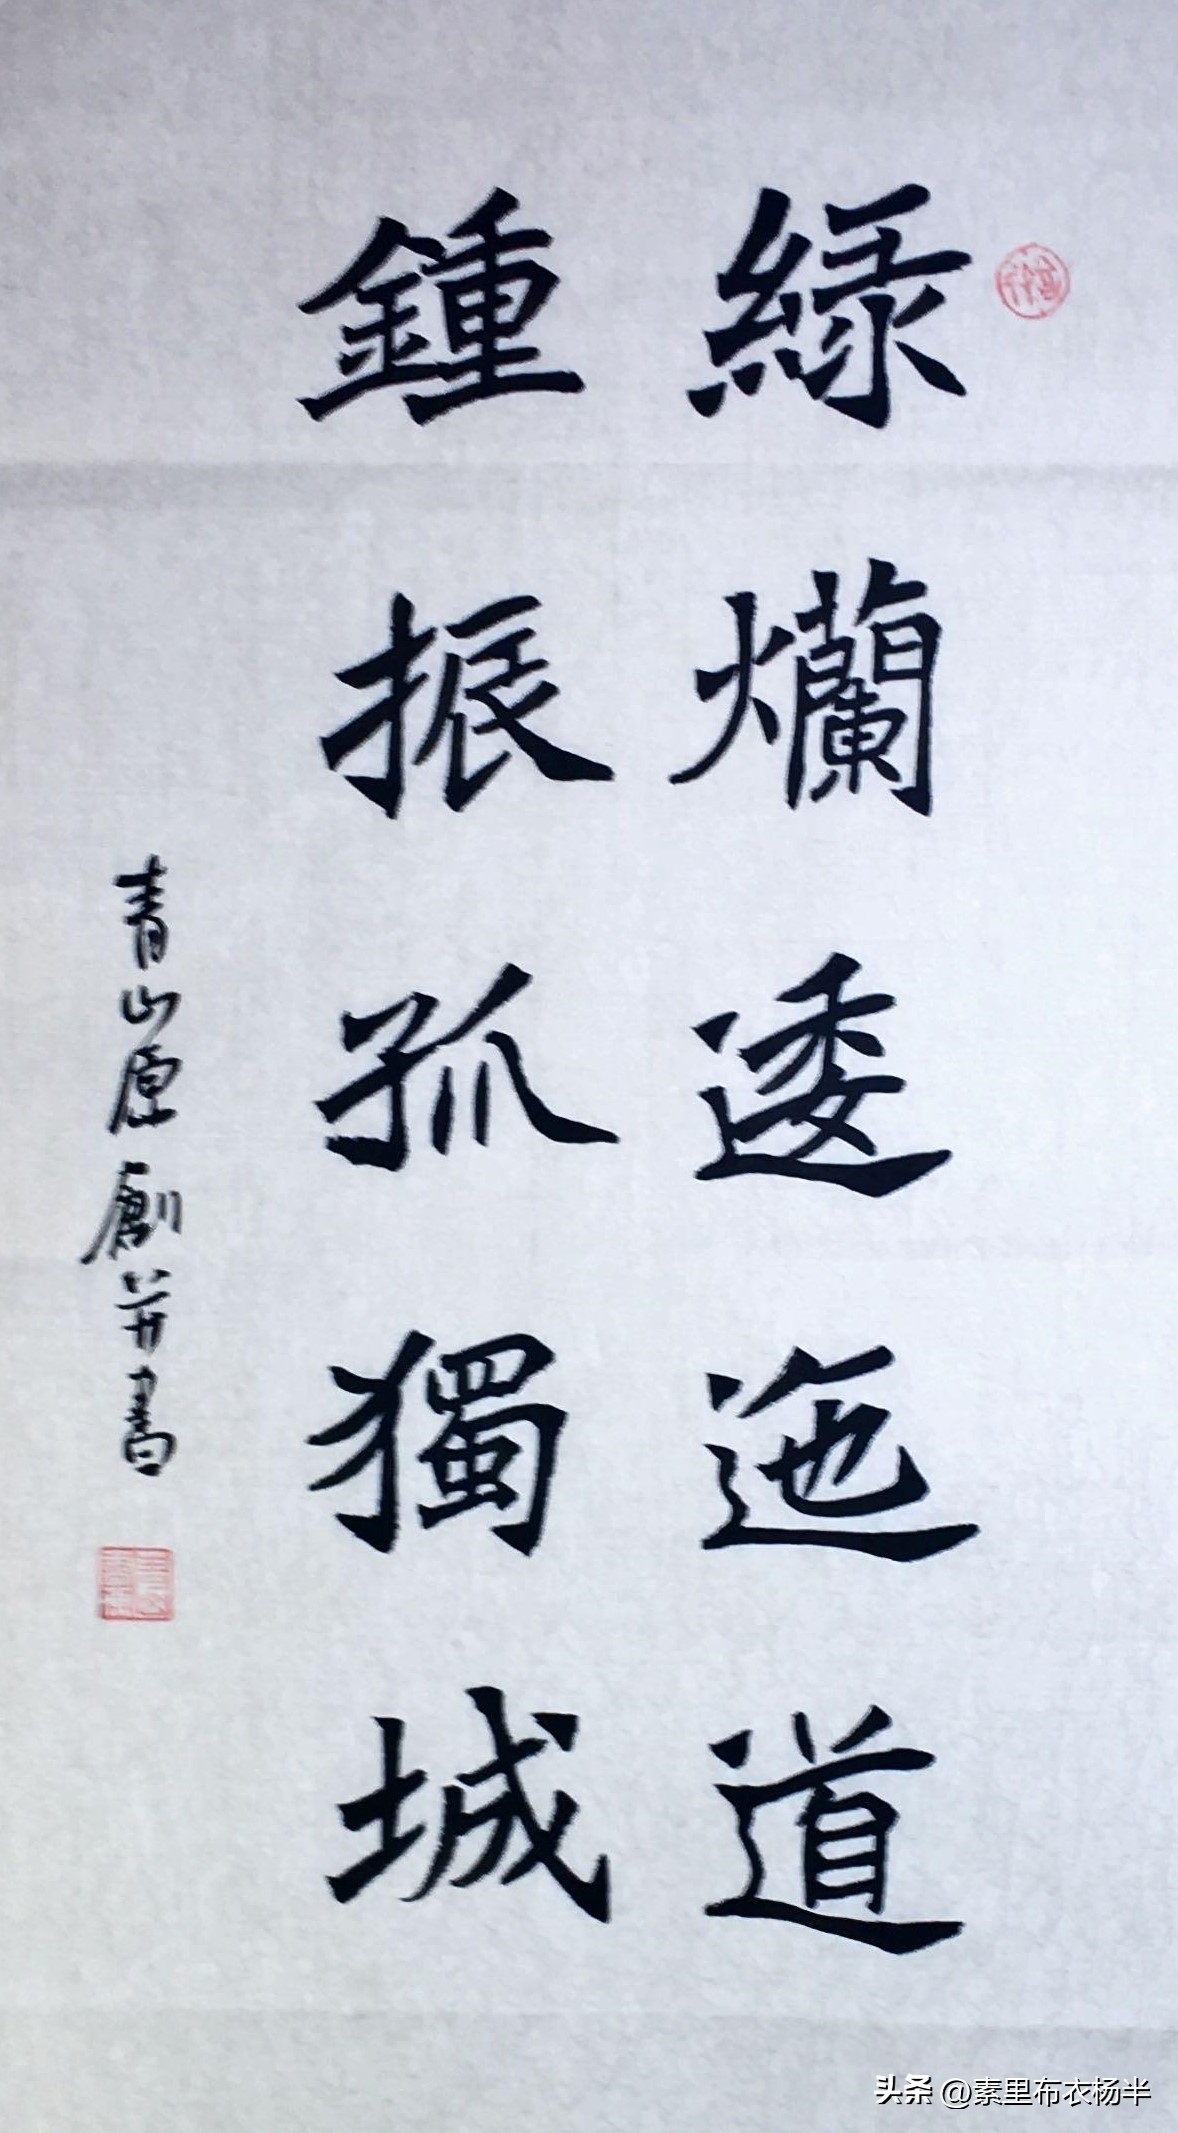 緑爛逶迤道
鍾振孤獨城
青山原創并書
头条 @素里布衣杨半